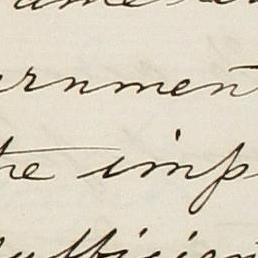 ernment
the imp
ufficien